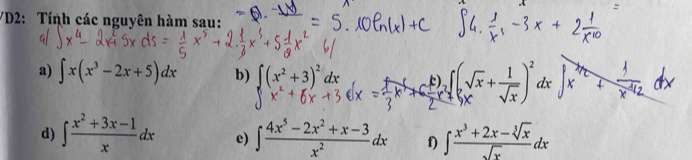 VD2: Tính các nguyên hàm sau:
= 5.10ln(x)+C ∫4.1/x³ -3x + 2 1/x¹⁰
a/ ∫x⁴ - 2x² 5x dx = 1/5 x⁵ + 2.1/3 x³ + 5 1/2 x² b/
a) ∫x(x³ - 2x + 5)dx b) ∫(x² + 3)² dx c) ∫(√x + 1/√x)² dx
∫x² + 6x + 3 dx = 1/3 x³
d) ∫(x² + 3x - 1)/x dx e) ∫(4x⁵ - 2x² + x - 3)/x² dx f) ∫(x³ + 2x - ∛x)/√x dx